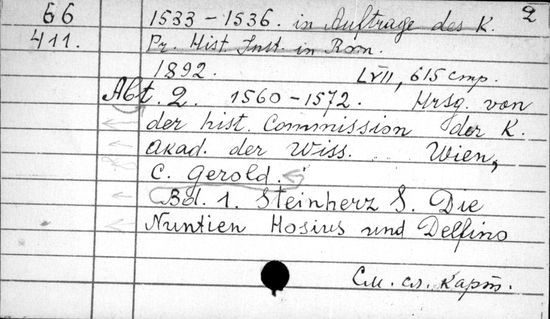 66 1533-1536. in Auftrage des K. 2
411. Pr. Hist. Inst. in Rom.
1892. LVII, 615 стр.
Abt. 2. 1560-1572. Hrsg. von
der hist. Commission der K.
Akad. der Wiss. Wien,
C. Gerold.
Bd. 1. Steinherz S. Die
Nuntien Hosius und Delfino
См. сл. карт.